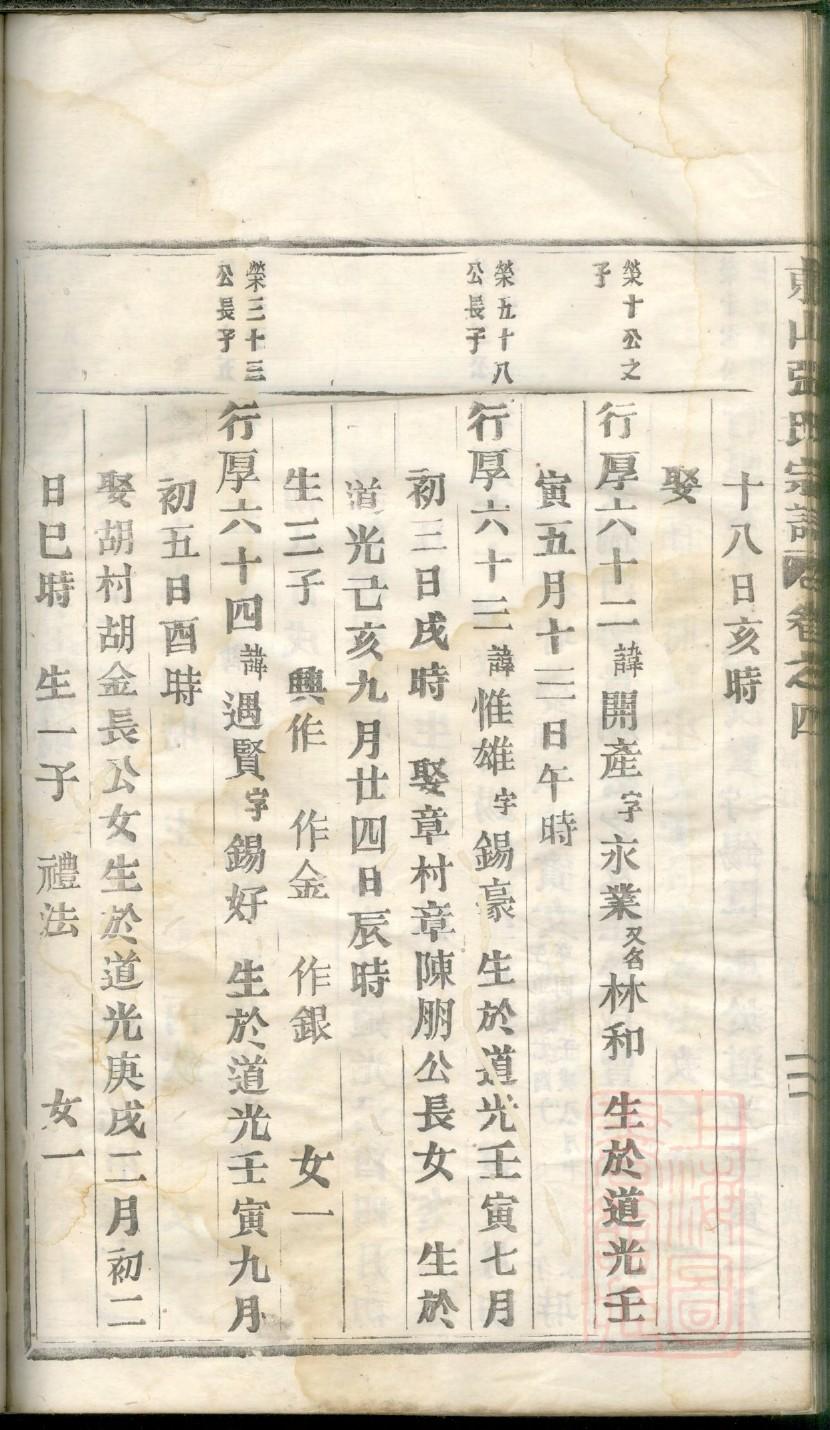 東山張氏宗譜 卷之四
十八日亥時
娶
榮十公之
子
行厚六十二諱開產字永業又名林和 生於道光壬
寅五月十三日午時
榮五十八
公長子
行厚六十三諱惟雄字錫豪 生於道光壬寅七月
初三日戌時 娶章村章陳朋公長女 生於
道光己亥九月廿四日辰時
生三子 興作 作金 作銀 女一
榮三十三
公長子
行厚六十四諱遇賢字錫好 生於道光壬寅九月
初五日酉時
娶胡村胡金長公女生於道光庚戌二月初二
日巳時 生一子 禮法 女一